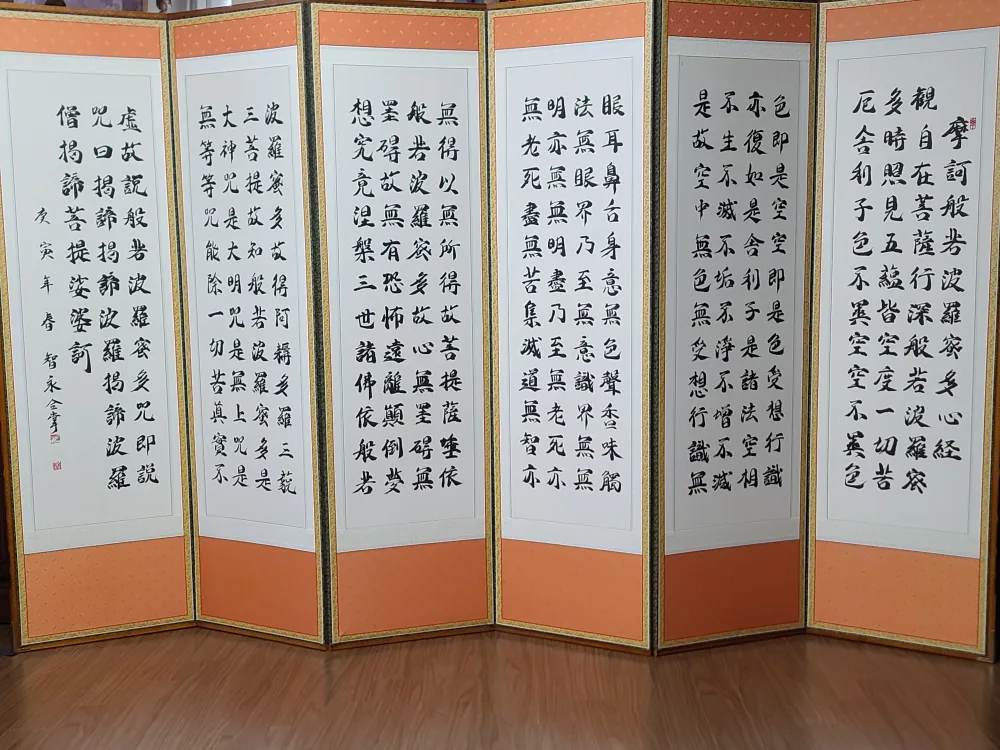 摩訶般若波羅蜜多心経
観自在菩薩行深般若波羅蜜
多時照見五蘊皆空度一切苦
厄舍利子色不異空空不異色
色即是空空即是色受想行識
亦復如是舍利子是諸法空相
不生不滅不垢不淨不增不減
是故空中無色無受想行識無
眼耳鼻舌身意無色聲香味觸
法無眼界乃至無意識界無無
明亦無無明盡乃至無老死亦
無老死盡無苦集滅道無智亦
無得以無所得故菩提薩埵依
般若波羅蜜多故心無罣礙無
罣礙故無有恐怖遠離顛倒夢
想究竟涅槃三世諸佛依般若
波羅蜜多故得阿耨多羅三藐
三菩提故知般若波羅蜜多是
大神咒是大明咒是無上咒是
無等等咒能除一切苦真實不
虛故說般若波羅蜜多咒即說
咒曰揭諦揭諦波羅揭諦波羅
僧揭諦菩提娑婆訶
庚寅年 春 智永合掌